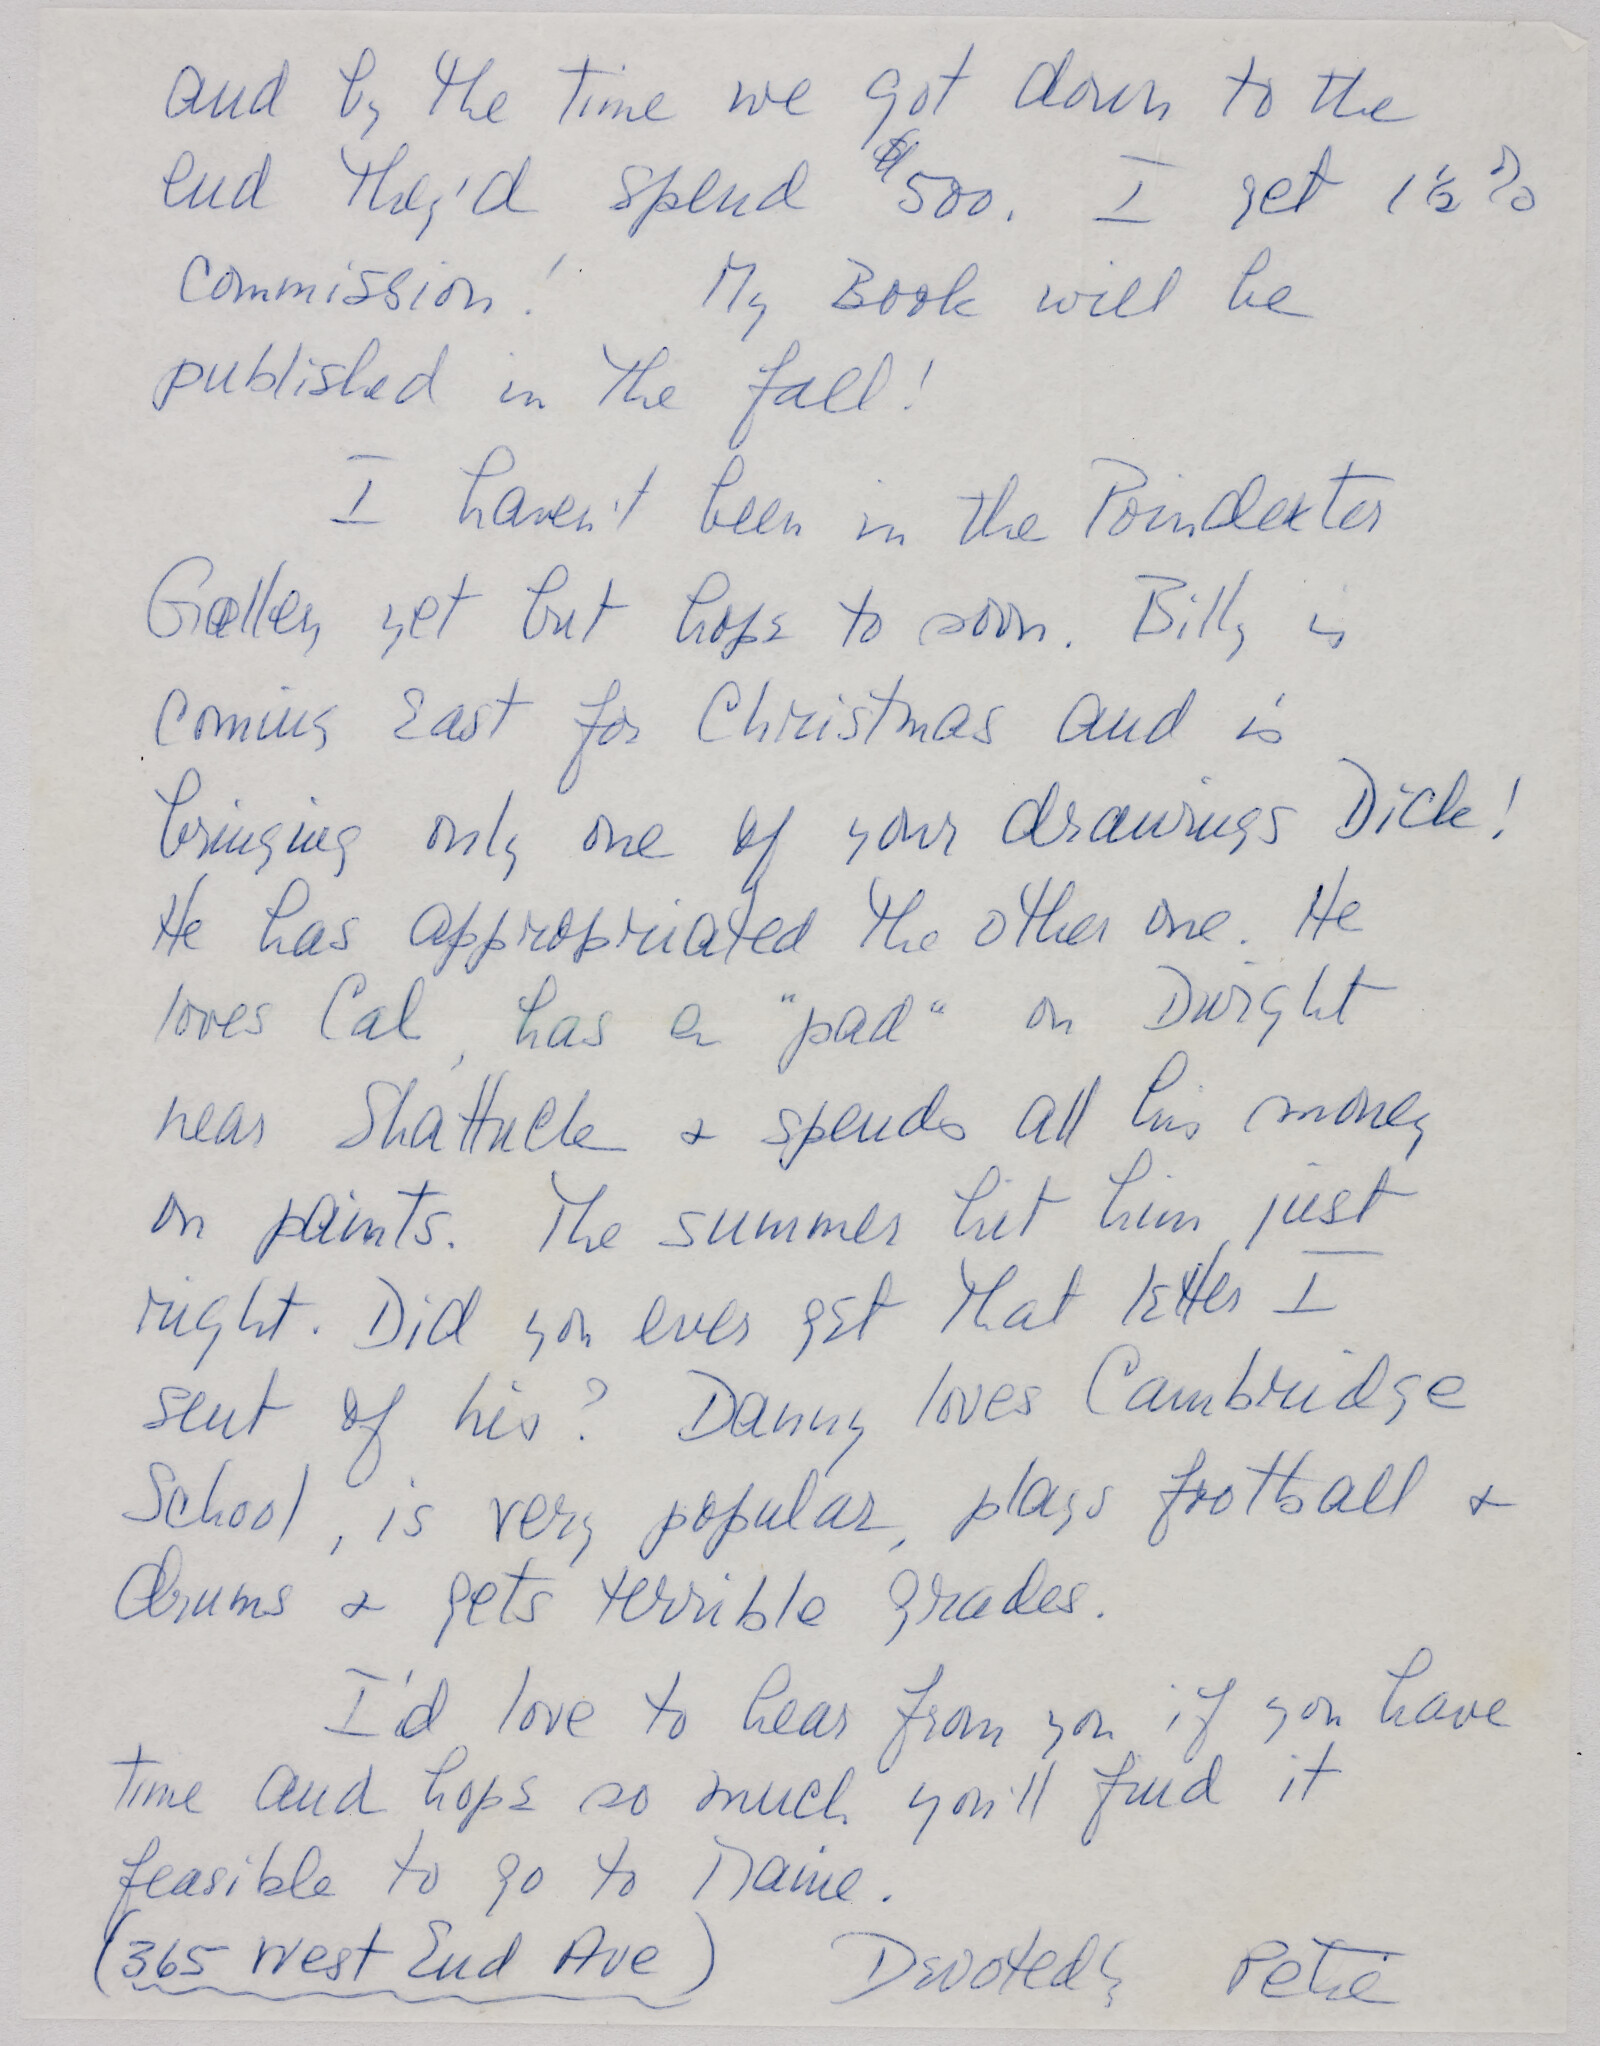 and by the time we got down to the
end they'd spend $500. I get 1½%
commission! My Book will be
published in the fall!
I haven't been in the Poindexter
Gallery yet but hope to soon. Billy is
coming East for Christmas and is
bringing only one of your drawings Dick!
He has appropriated the other one. He
loves Cal, has a "pad" on Dwight
near Shattuck & spends all his money
on paints. The summer hit him just
right. Did you ever get that letter I
sent of his? Danny loves Cambridge
School, is very popular, plays football &
drums & gets terrible grades.
I'd love to hear from you if you have
time and hope so much you'll find it
feasible to go to Maine.
(365 West End Ave) Devotedly Petie